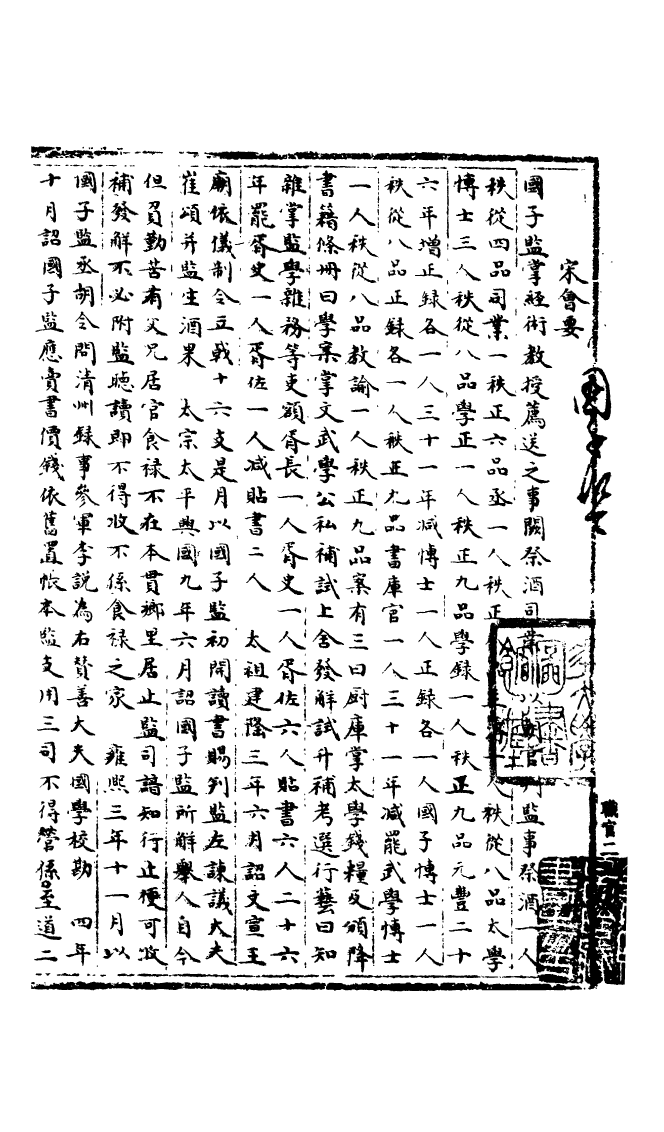 宋會要
國子監
國子監掌經術教授薦送之事闕祭酒司業以判監事祭酒一人
秩從四品司業一秩正六品丞一人秩正一人秩從八品太學
博士三人秩從八品學正一人秩正九品學録一人秩正九品元豐二十
六年增正録各一人三十一年减博士一人正録各一人國子博士一人
秩從八品正録各一人秩正九品書庫官一人三十一年减罷武學博士
一人秩從八品教諭一人秩正九品案有三曰厨庫掌太學錢糧及頒降
書籍條册曰學案掌文武學公私補試上舍發解試升補考選行藝曰知
雜掌監學雜務等吏額胥長一人胥史一人胥佐六人貼書六人二十六
年罷胥史一人胥佐一人减貼書二人　太祖建隆三年六月詔文宣王
廟依儀制令立戟十六支是月以國子監初開讀書賜判監左諫議大夫
崔頌并監生酒果　太宗太平興國九年六月詔國子監所解舉人自今
但負勤苦有父兄居官食禄不在本貫鄉里居止監司諳知行止便可收
補發解不必附監聽讀即不得收不係食禄之家　雍熙三年十一月以
國子監丞胡令問清州録事參軍李説為右贊善大夫國學校勘　四年
十月詔國子監應賣書價錢依舊置帳本監支用三司不得管係至道二
職官二